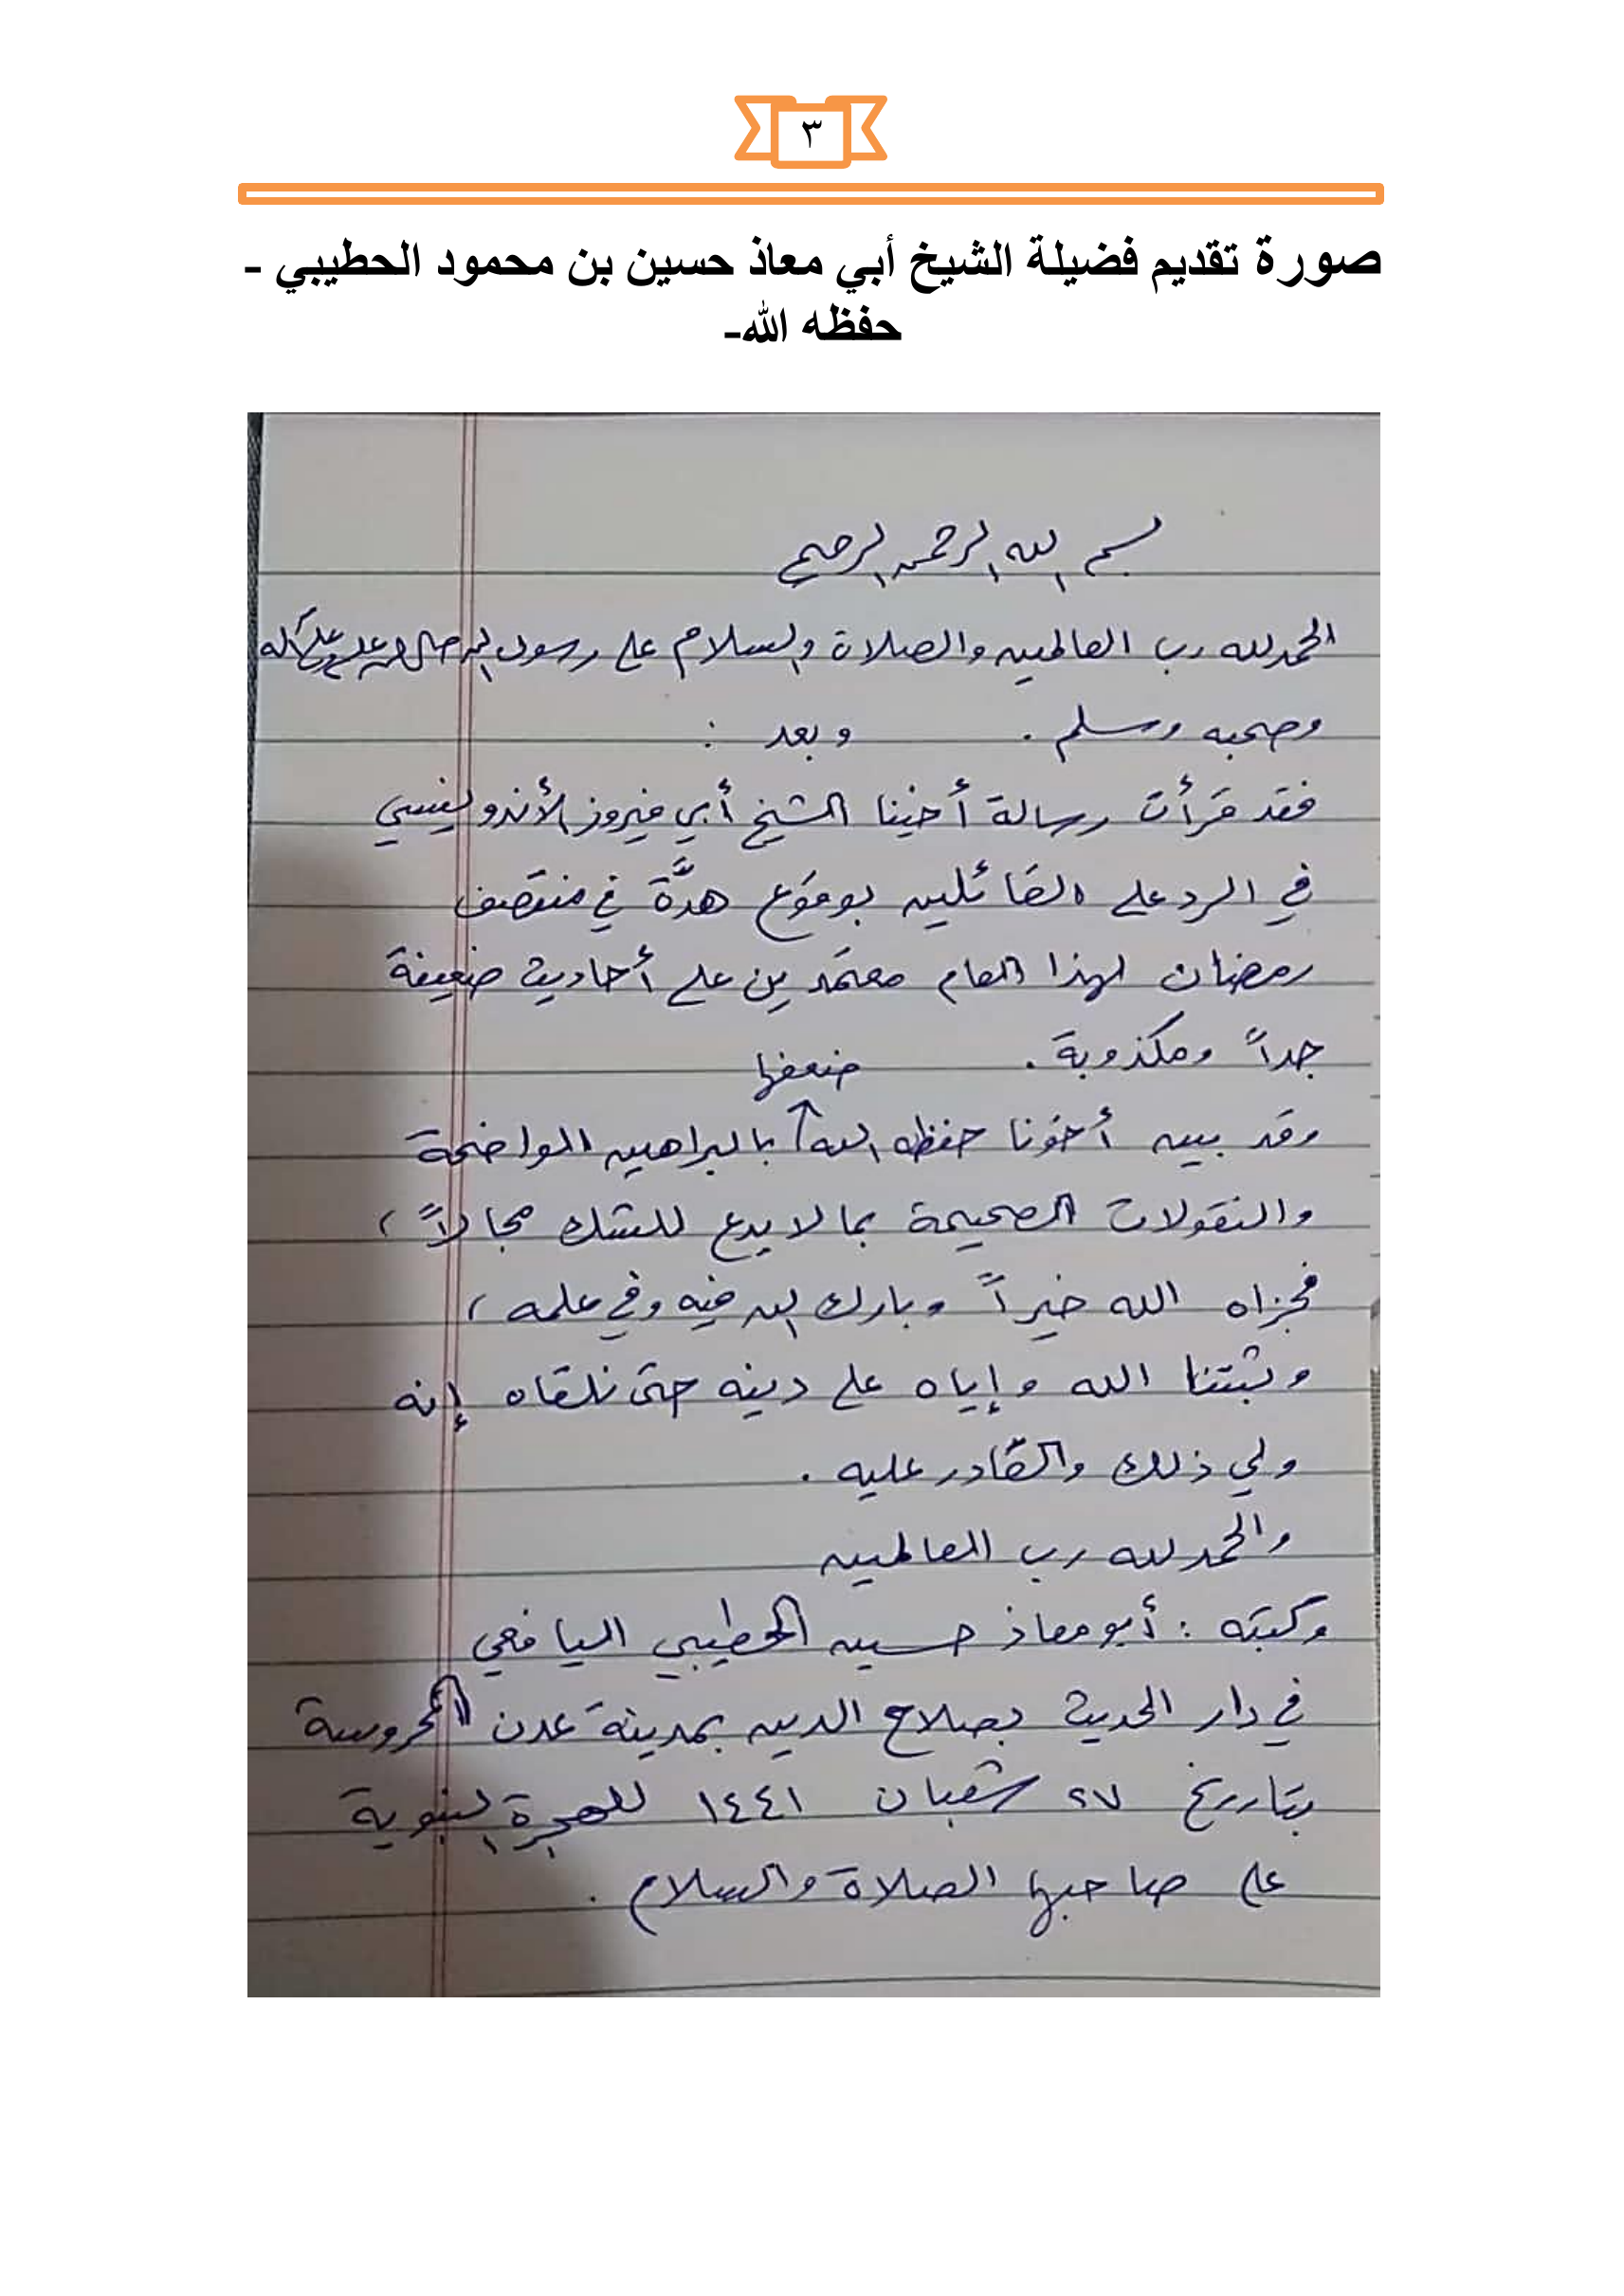 ٣
صورة تقديم فضيلة الشيخ أبي معاذ حسين بن محمود الحطيبي -
حفظه الله-
بسم الله الرحمن الرحيم
الحمد لله رب العالمين والصلاة والسلام على رسول الله صلى الله عليه وعلى آله
وصحبه وسلم . وبعد :
فقد قرأت رسالة أخينا الشيخ أبي فيروز الأندونيسي
في الرد على القائلين بوقوع هدَّة في منتصف
رمضان لهذا العام معتمدين على أحاديث ضعيفة
جداً ومكذوبة .
ضعفها
وقد بين أخونا حفظه الله بالبراهين الواضحة
والنقولات الصحيحة بما لا يدع للشك مجالاً ،
فجزاه الله خيراً وبارك الله فيه وفي علمه ،
وثبتنا الله وإياه على دينه حتى نلقاه إنه
ولي ذلك والقادر عليه .
والحمد لله رب العالمين
وكتبه : أبو معاذ حسين الحطيبي اليافعي
في دار الحديث بصلاح الدين بمدينة عدن المحروسة
بتاريخ ٢٧ شعبان ١٤٤١ للهجرة النبوية
على صاحبها الصلاة والسلام .